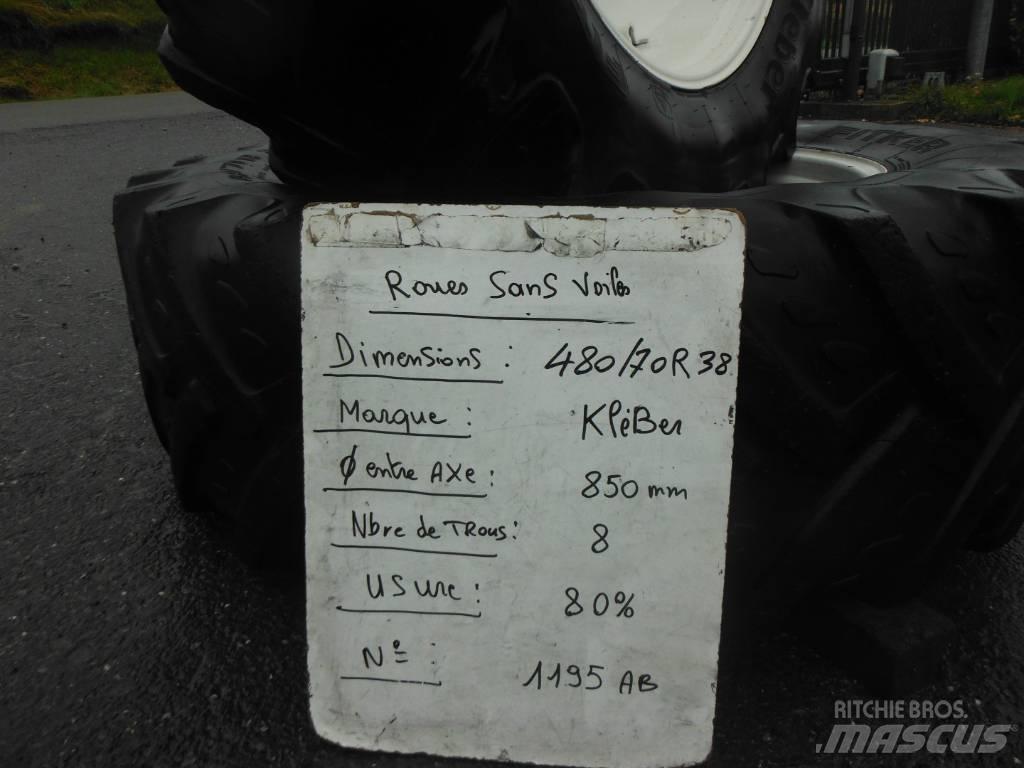 Kleber
Roues Sans Voiles
Dimensions : 480/70R38
Marque : KléBer
Ø entre AXe : 850 mm
Nbre de TRous : 8
USure : 80%
Nº : 1195 AB
RITCHIE BROS.
MASCUS